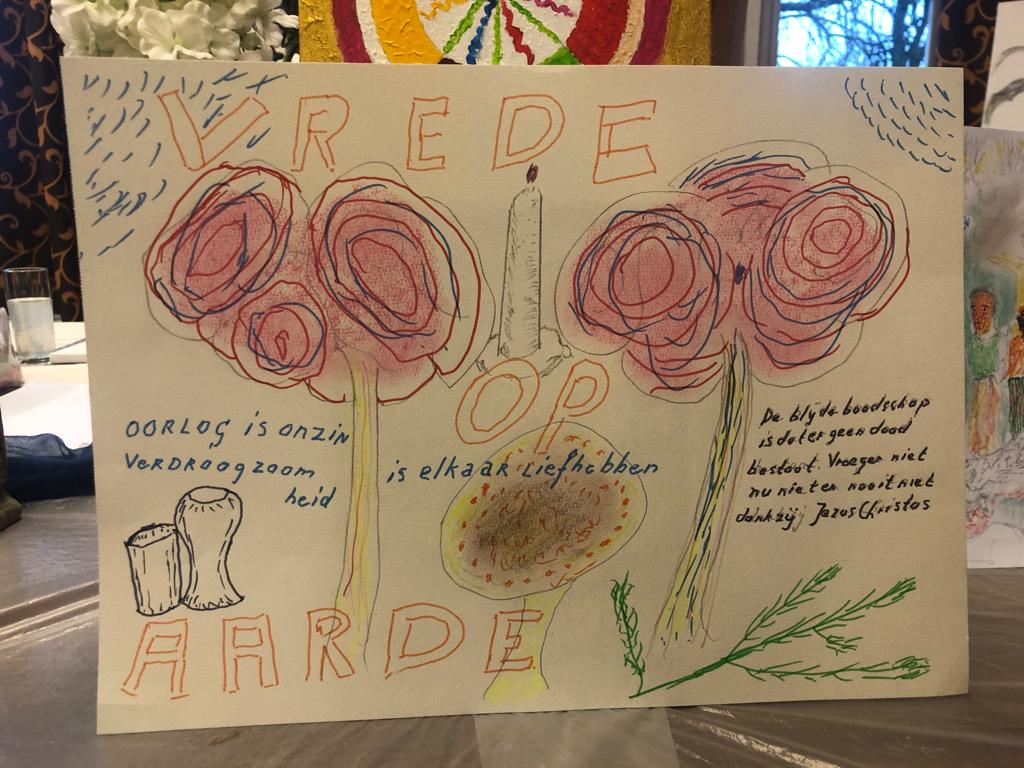 VREDE
OP
OORLOG is onzin
VERDROOGZOOM
heid
is elkaar Liefhebben
De blijde boodschap
is dat er geen dood
bestaat. Vroeger niet
nu niet en nooit niet
dankzij Jezus Christus
AARDE